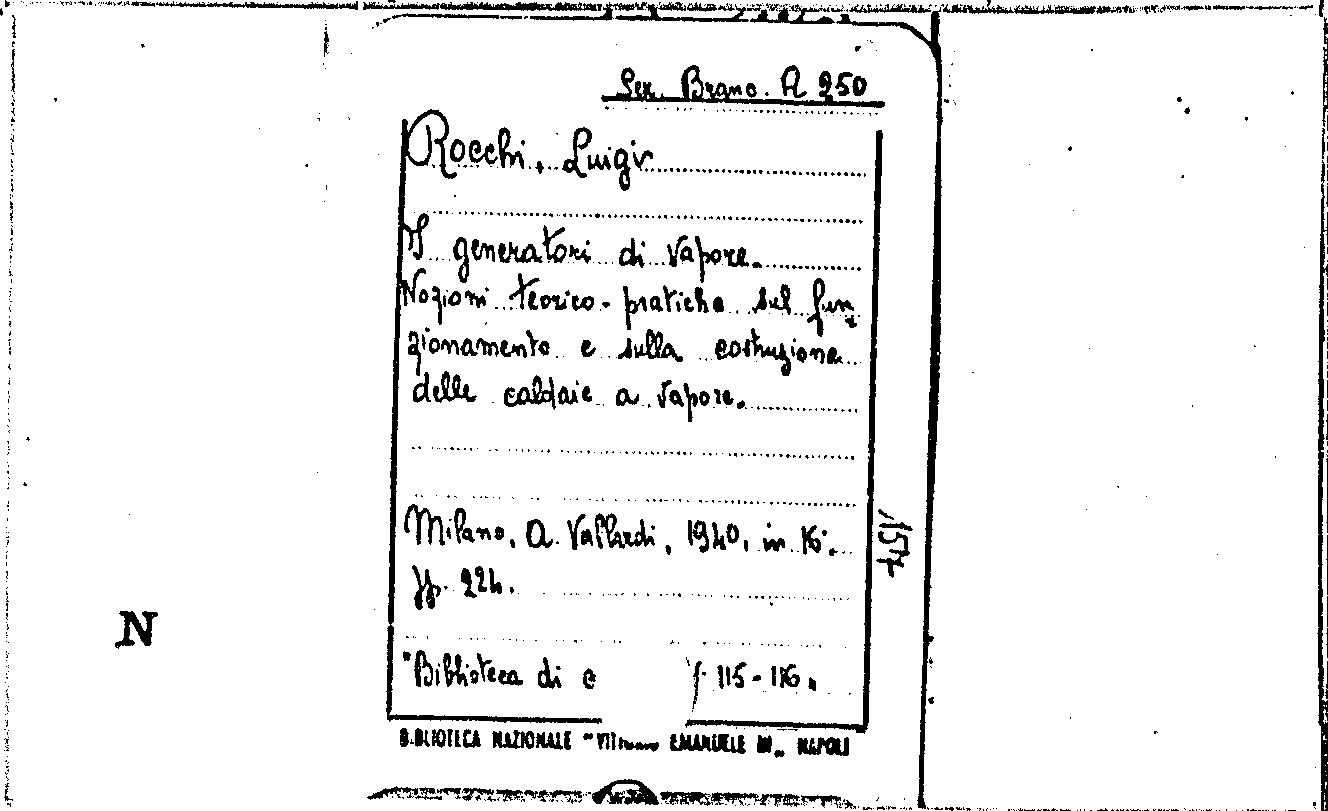 Sez. Branc. A 250
Rocchi, Luigi
I generatori di vapore.
Nozioni teorico-pratiche sul fun
zionamento e sulla costruzione
delle caldaie a vapore.
Milano, A. Vallardi, 1940, in 16°.
pp. 224.
"Biblioteca di c f. 115-116.
157
N
BIBLIOTECA NAZIONALE "VITTORIO EMANUELE III" NAPOLI